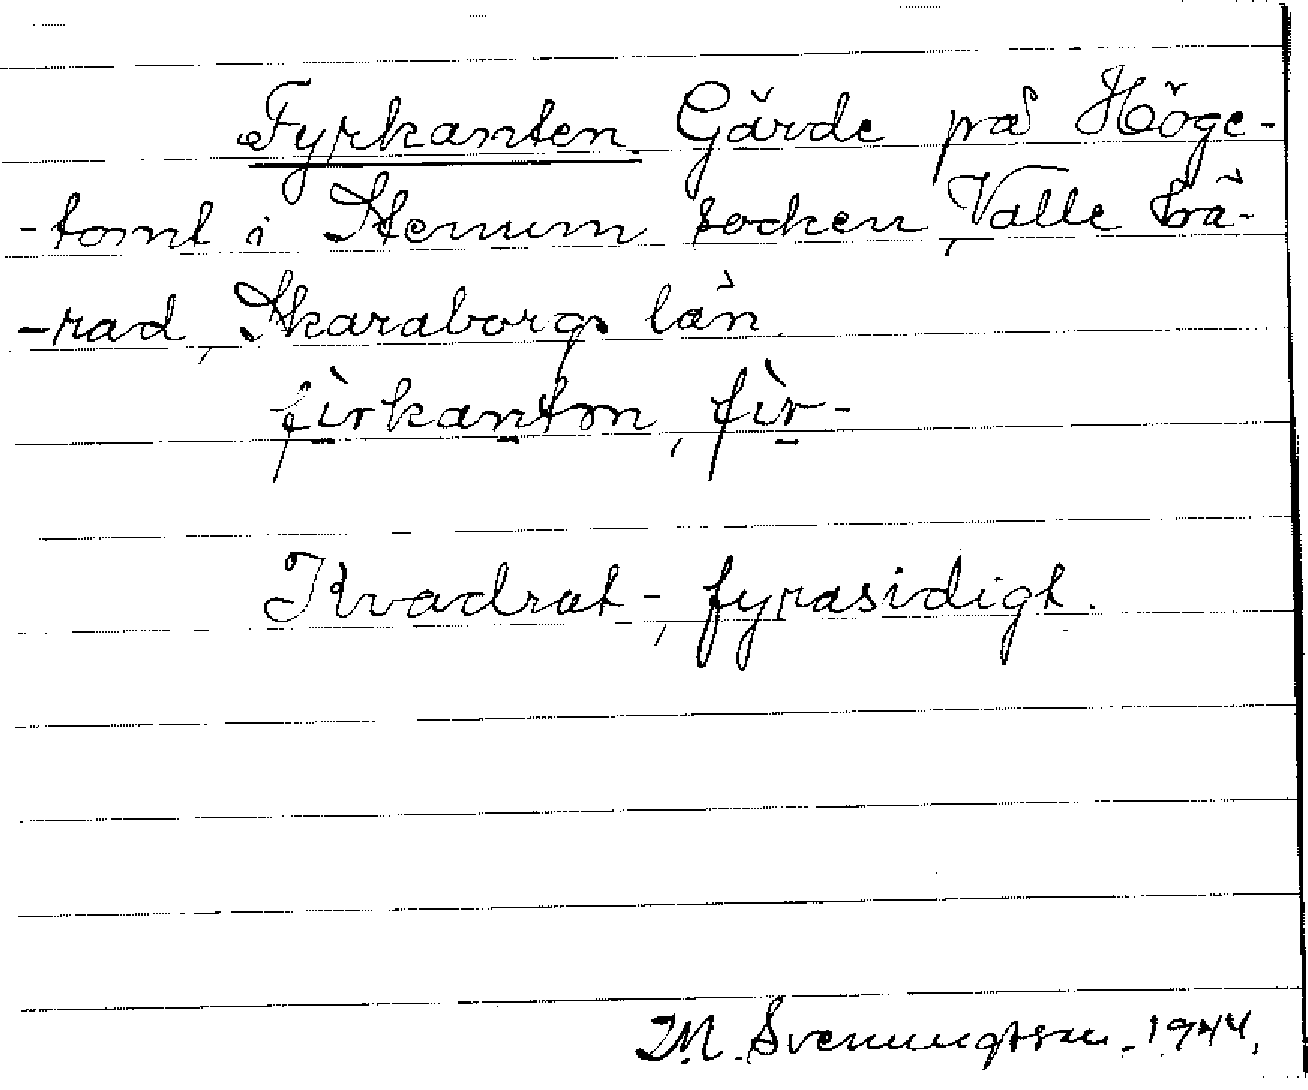 Fyrkanten. Gärde på Höge-
-tomt i Stenum socken, Valle hä-
-rad, Skaraborgs län.
fìrkantɷn, fìr-
Kvadrat-, fyrasidigt.
M. Svenungsson. 1944.